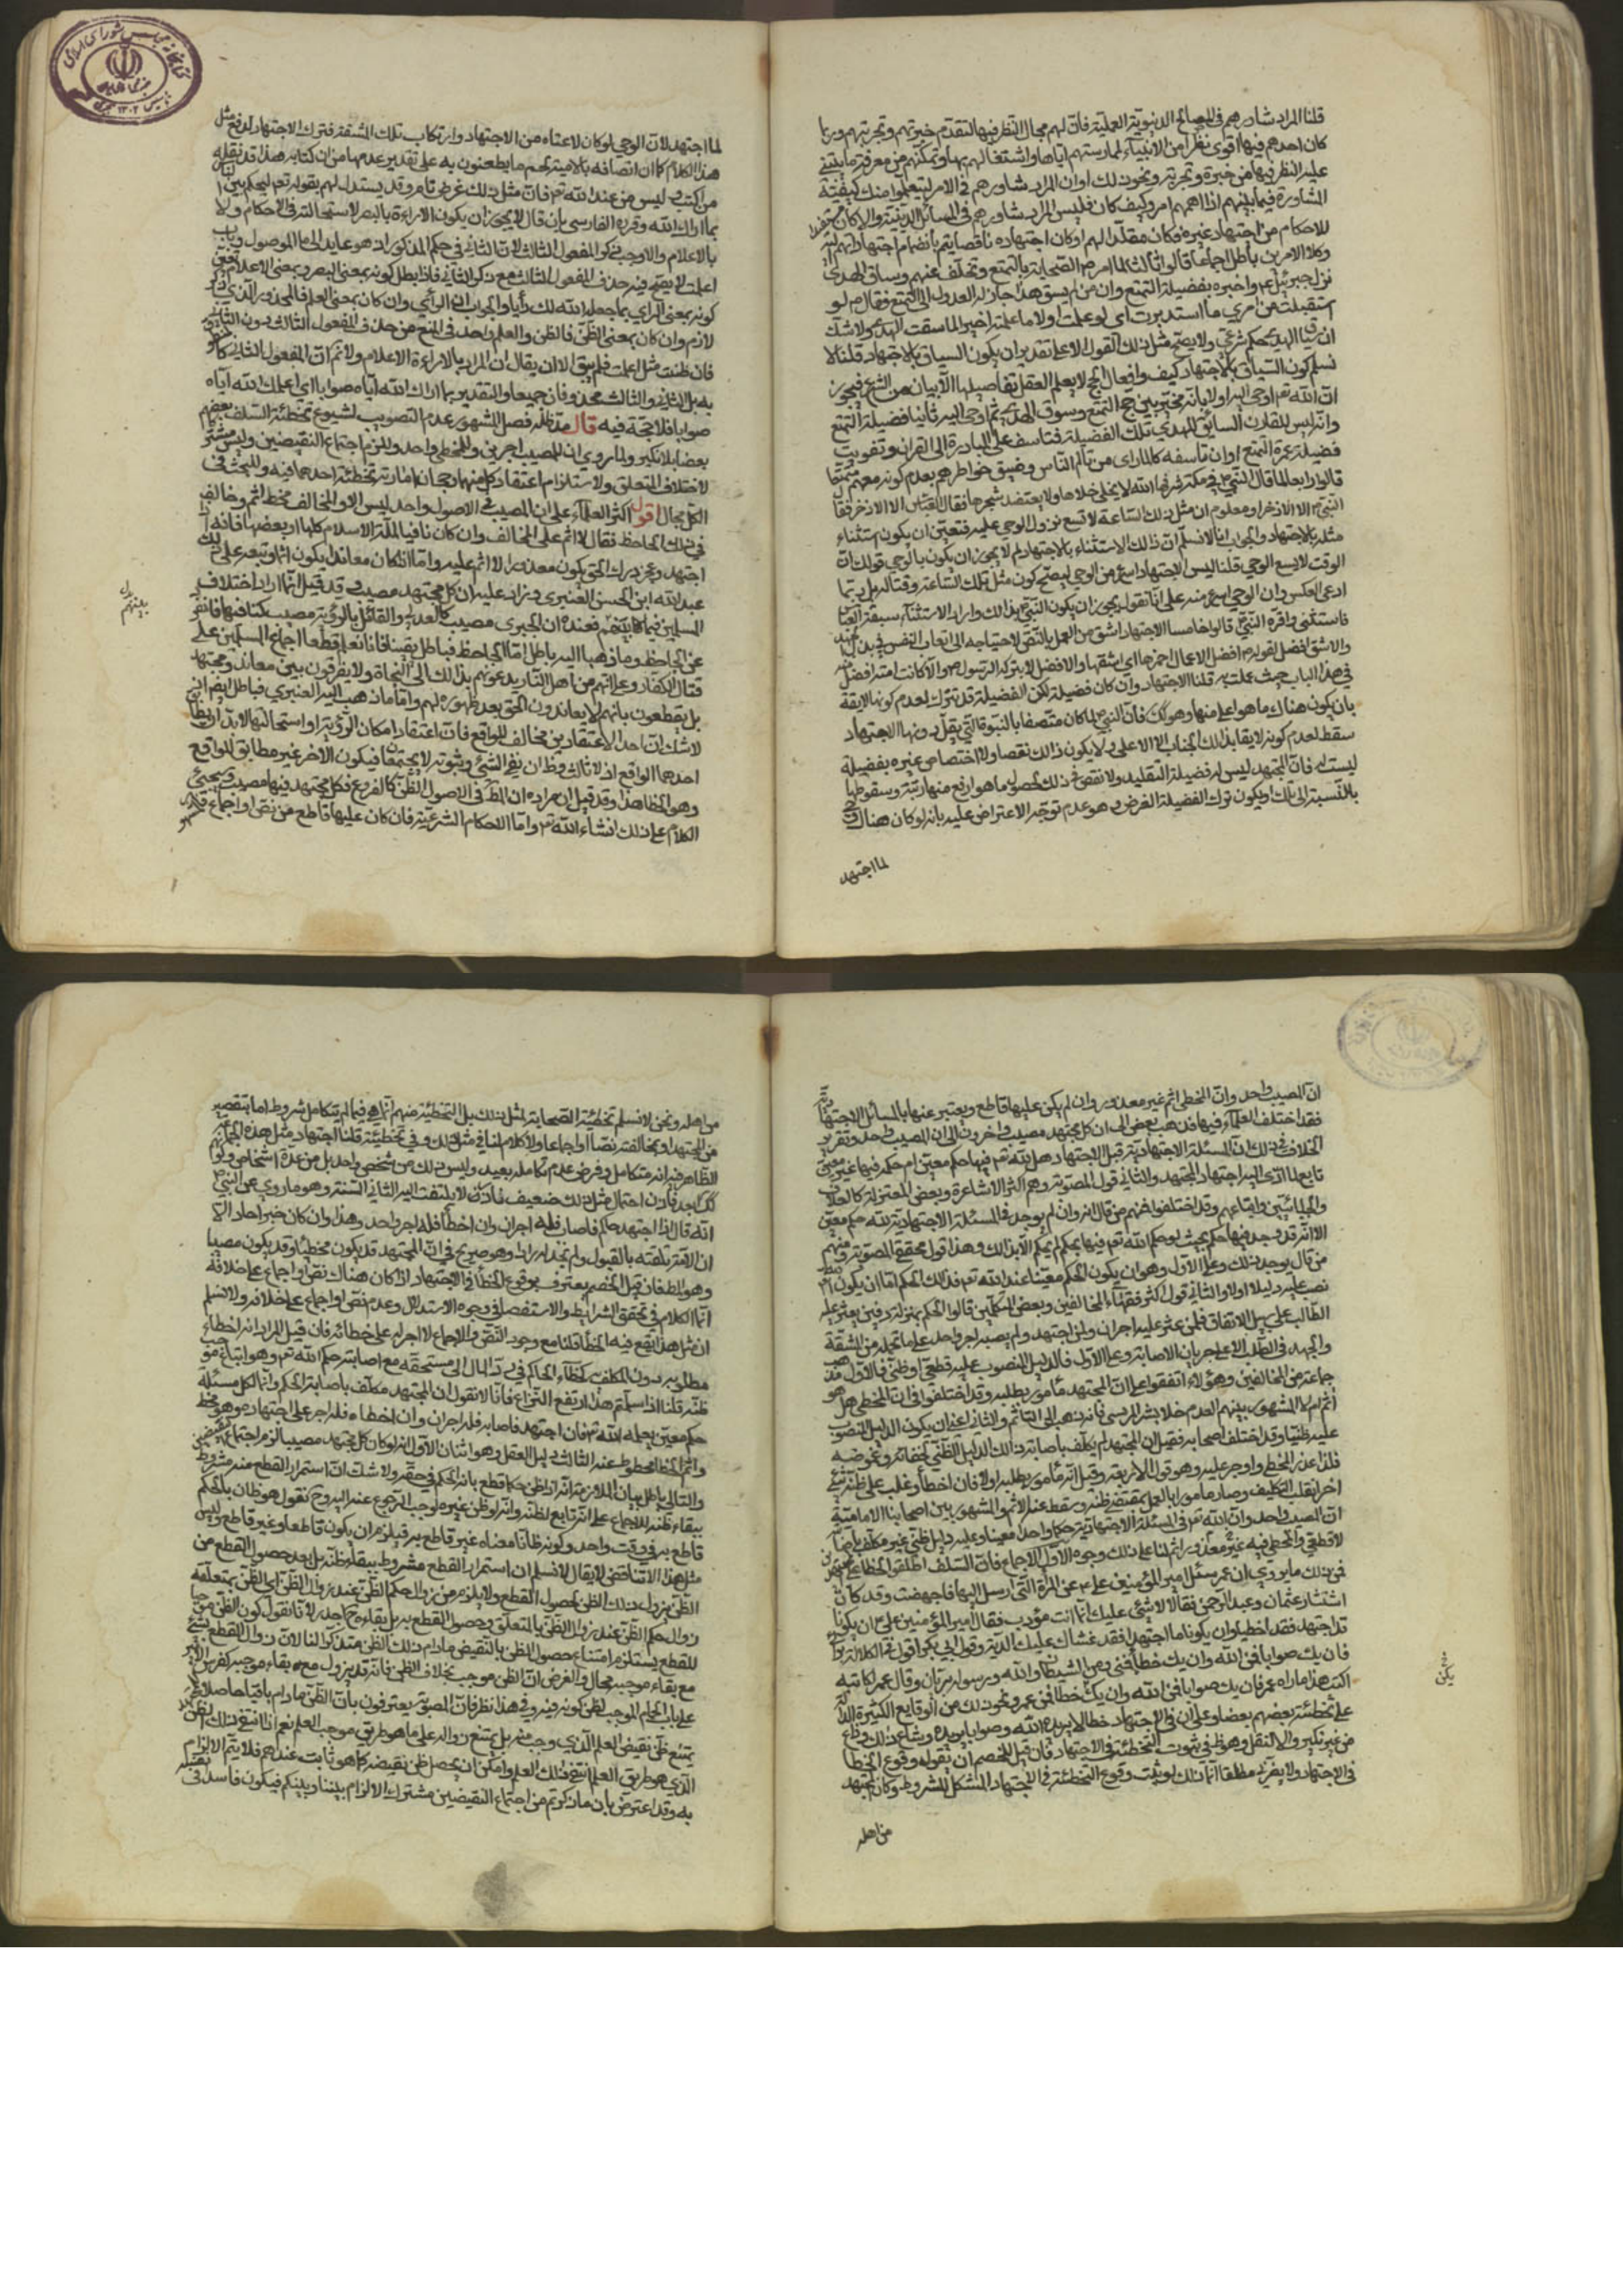 قلنا المراد شاورهم فى المصالح الدنيوية العملية فان لهم مجال النظر فيها لتقدم خبرتهم وتجربتهم وربما
كان احدهم فيها اقوى نظرا من الانبياء لممارستهم اياها واشتغالهم بها وتمكنهم من معرفة ما يبتنى
عليه النظر فيها من خبرة وتجربة ونحو ذلك او ان المراد شاورهم فى الامر ليتعلموا منك كيفية
المشاورة فيما بينهم اذا اهمهم امر وكيف كان فليس المراد شاورهم فى المسائل الدينية والا كان
للاحكام من اجتهاد غيره فكان مقلدا لهم او كان اجتهاده ناقصا يتم بانضمام اجتهاداتهم اليه
وكلا الامرين باطل اجماعا قالوا ثالثا لما امر ص الصحابة بالتمتع وتخلف عنهم وساق الهدى
نزل جبرئيل ع واخبره بفضيلة التمتع وان من لم يسق هذا جاز له العدول الى التمتع فقال ص لو
استقبلت من امري ما استدبرت اى لو علمت اولا ما علمته اخيرا لما سقت الهدى ولا شك
ان سياق الهدى حكم شرعى ولا يصح مثل ذلك القول الا على تقدير ان يكون السياق بالاجتهاد قلنا لا
نسلم كون السياق بالاجتهاد كيف وافعال الحج لا يعلم العقل تفاصيلها الا ببيان من الشرع فيجوز
ان الله تع اوحى اليه اولا بانه مخير بين حج التمتع وسوق الهدى ثم اوحى اليه ثانيا فضيلة التمتع
وانه ليس للقارن السائق للهدى تلك الفضيلة فتاسف على المبادرة الى القران وتفويت
فضيلة عمرة التمتع او ان تاسفه كان لما راى من تالم الناس وضيق خواطرهم بعدم كونه معهم متمتعا
قالوا رابعا لما قال النبي ص فى مكة شرفها الله لا يختلى خلاها ولا يعتضد شجرها فقال العباس الا الاذخر فقال
النبي ص الا الاذخر ومعلوم ان مثل ذلك الساعة لا تسع نزول الوحي عليه فتعين ان يكون استثناء
مثله بالاجتهاد والجواب انا لا نسلم ان ذلك الاستثناء بالاجتهاد لم لا يجوز ان يكون بالوحي قولك ان
الوقت لا يسع الوحي قلنا ليس الاجتهاد اسرع من الوحي ليصح كون مثل تلك الساعة وقتا له بل ربما
ادعى العكس وان الوحي اسرع منه على انا نقول يجوز ان يكون النبي ص يذكر ذلك واراد الاستثناء سبقه العباس
فاستثنى واقره النبي ص قالوا خامسا الاجتهاد اشق من العمل بالنص لاحتياجه الى اتعاب النفس فى بذل
والاشق افضل لقوله ص افضل الاعمال احمزها اى اشقها والافضل لا يتركه الرسول ص والا كانت امته افضل منه
فى هذا الباب حيث عملت به قلنا الاجتهاد وان كان فضيلة لكن الفضيلة قد تترك لعدم كونها لايقة
بان يكون هناك ما هو اعلى منها وهو كك فان النبي ص لما كان متصفا بالنبوة التي يقل دونها الاجتهاد
سقط لعدم كونه لايقا بذلك الجناب الاعلى ولا يكون ذلك نقصا ولا اختصاص غيره بفضيلة
ليست له فان المجتهد ليس له فضيلة التقليد ولا نقص فى ذلك لحصول ما هو ارفع منها رتبة وسقوطها
بالنسبة الى تلك او يكون ترك الفضيلة لغرض وهو عدم توجه الاعتراض عليه بانه لو كان هناك وحي
لما اجتهد
لما اجتهد لان الوحي لو كان لاغناه من الاجتهاد وارتكاب تلك المشقة فترك الاجتهاد لدفع مثل
هذا الكلام كما ان اتصافه بالامية لحسم ما يطعنون به على تقدير عدمها من ان كتابه هذا قد نقله
من الكتب وليس من عند الله تع فان مثل ذلك غرض تام وقد يستدل لهم بقوله تع لتحكم بين الناس
بما اراك الله وقرره الفارسى بان قال لا يجوز ان يكون الاراءة بالبصر لاستحالته فى الاحكام ولا
بالاعلام والا وجب ذكر المفعول الثالث لان الثانى فى حكم المذكور اذ هو عايد الى ما الموصول وباب
اعلمت لا يصح فيه حذف المفعول الثالث مع ذكر الثانى فاذا بطل كونه بمعنى البصر وبمعنى الاعلام تعين
كونه بمعنى الراي بما جعله الله لك رأيا والجواب ان الرأي وان كان بمعنى العلم فالمحذور الذي ذكر
لازم وان كان بمعنى الظن فالظن والعلم واحد فى المنع من حذف المفعول الثالث دون الثانى
فان ظننت مثل اعلمت فلم يبق الا ان يقال ان المراد بالاراءة الاعلام ولا نم ان المفعول الثانى كالمذكور
به بل الثانى والثالث محذوفان جميعا والتقدير بما اراك الله آياه صوابا اى اعلمك الله آياه
صوابا فلا حجة فيه قال مد ظله فصل المشهور عدم التصويب لشيوع تخطئة السلف بعضهم
بعضا بلا نكير ولما روي ان للمصيب اجرين وللمخطى واحد وللزم اجتماع النقيضين وليس مشتركا
لاختلاف المتعلق ولاستلزام اعتقاد كل منهما رجحان امارته تخطئة احدهما فيه وللبحث فى
الكل مجال اقول اكثر العلماء على ان المصيب فى الاصول واحد ليس الا والمخالف مخطئ اثم وخالف
فى ذلك الجاحظ فقال لا اثم على المخالف وان كان نافيا لملة الاسلام كلها او بعضها فانه اذا
اجتهد وعجز درك الحق يكون معذورا لا اثم عليه واما اذا كان معاندا يكون اثما وتبعه على ذلك
عبد الله ابن الحسن العنبري وزاد عليه ان كل مجتهد مصيب وقد قيل انما اراد اختلاف
المسلمين فيما بينهم فعنده ان الجبرى مصيب كالعدلى والقائل بالرؤية مصيب كنافيها فانفرد
عن الجاحظ وما ذهبا اليه باطل اما الجاحظ فباطل يقينا فانا نعلم قطعا اجماع المسلمين على
قتال الكفار وعلى انهم من اهل النار يدعونهم بذلك الى النجاة ولا يفرقون بين معاند ومجتهد
بل يقطعون بانهم لا يعاندون الحق بعد ظهوره لهم واما ما ذهب اليه العنبري فباطل ايضا
لا شك ان احد الاعتقادين مخالف للواقع فان اعتقاد امكان الرؤية او استحالتها لابد ان يطابق
احدهما الواقع اذ لا ثالث وظ ان نفي الشئ وثبوته لا يجتمعان فيكون الاخر غير مطابق للواقع
وهو الخطا هذا وقد قيل ان مراده ان الظن فى الاصول الظن كالفروع فكل مجتهد فيها مصيب وسيجئ
الكلام على ذلك انشاء الله تع واما الاحكام الشرعية فان كان عليها قاطع من نص او اجماع
بينهم
ان المصيب واحد وان المخطى اثم غير معذور وان لم يكن عليها قاطع ويعتبر عنها بالمسائل الاجتهادية
فقد اختلف العلماء فيها فذهب بعض الى ان كل مجتهد مصيب واخرون الى ان المصيب واحد وتقرير
الخلاف فى ذلك ان المسئلة الاجتهادية قبل الاجتهاد هل لله تع فيها حكم معين ام حكمه فيها غير معين
تابع لما ادى اليه اجتهاد المجتهد والثانى قول المصوبة وهم اكثر الاشاعرة وبعض المعتزلة كالعلاف
والجبائيين واتباعهم وقد اختلفوا فمنهم من قال انه وان لم يوجد فى المسئلة الاجتهادية لله حكم معين
الا انه قد وجد فيها حكم بحيث لو حكم الله تع فيها بحكم لم يحكم الا بذلك وهذا قول محققى المصوبة ومنهم
من قال يوجد ذلك وعلى الاول وهو ان يكون الحكم معينا عند الله تع فذلك الحكم اما ان يكون الله
نصب عليه دليلا او لا والثانى قول اكثر فقهاء المخالفين وبعض المتكلمين قالوا الحكم بمنزلة دفين يعثر عليه
الطالب على سبيل الاتفاق فلمن عثر عليه اجران ولمن اجتهد ولم يصبه اجر واحد على ما تحمله من المشقة
والجهد فى الطلب الاعلى اجران الاصابة وعلى الاول فالدليل المنصوب عليه قطعي او ظنى فالاول مذهب
جماعة من المخالفين وهؤلاء اتفقوا على ان المجتهد مأمور بطلبه وقد اختلفوا فى ان المخطى هل هو
اثم ام لا المشهور بينهم العدم خلا بشر المريسى فانه ذهب الى التاثم والثانى اعنى ان يكون الدليل المنصوب
عليه ظنيا وقد اختلف اصحابه فقيل ان المجتهد لم يكلف باصابة ذلك الدليل الظنى لخفائه وغموضه
فلذا عذر المخطى واوجر عليه وهو قول الاربعة وقيل انه مأمور بطلبه اولا فان اخطأ وغلب على ظنه شئ
اخر انقلب التكليف وصار مامورا بالعمل بمقتضى ظنه وسقط عنه الاثم والمشهور بين اصحابنا الامامية
ان المصيب واحد وان الله تع فى المسئلة الاجتهادية حكما واحدا معينا وعليه دليل ظنى غير مكلف باصابته
لا قطعي والمخطى فيه غير معذور اثم لنا على ذلك وجوه الاول الاجماع فان السلف اطلقوا الخطا على
فمن ذلك ما يروي ان عمر سئل امير المؤمنين على ع عن المراة التى ارسل اليها فاجهضت وقد كان
استشار عثمان وعبد الرحمن فقالا لا شئ عليك انما انت مؤدب فقال امير المؤمنين على ع ان يكونا
قد اجتهدا فقد اخطيا وان يكونا ما اجتهدا فقد غشاك عليك الدية وقول ابى بكر اقول فى الكلالة برأي
فان يك صوابا فمن الله وان يك خطأ فمنى ومن الشيطان والله ورسوله بريان وقال عمر لكاتبه
اكتب هذا ما راه عمر فان يك صوابا فمن الله وان يك خطأ فمن عمر ونحو ذلك من الوقايع الكثيرة الدالة
على تخطئة بعضهم بعضا وعلى ان فى الاجتهاد خطا لا يريده الله وصوابا يريده وشاع ذلك وذاع
من غير نكير والا لنقل وهو ظ فى ثبوت التخطئة فى الاجتهاد فان قيل للخصم ان يقول وقوع الخطا
فى الاجتهاد ولا يضره مطلقا انما ذلك لو ثبت وقوع التخطئة فى الاجتهاد المستكمل للشروط وكان المجتهد
من اهله
يكن
من اهله ونحن لا نسلم تخطئة الصحابة لمثل ذلك بل التخطئة منهم انما هي فيما لم يتكامل شروطه اما بتقصير
من المجتهد او بمخالفته نصا او اجماعا ولا كلام لنا فى مثل ذلك وفى تخطئته قلنا اجتهاد مثل هذه الجماعة
الظاهر فيه انه متكامل وفرض عدم تكامله بعيد وليس ذلك من شخص واحد بل من عدة اشخاص ولو
كك ابعد فاذن احتمال مثل ذلك ضعيف نادر لا يلتفت اليه الثانى السنة وهو ما روي عن النبي ص
انه قال اذا اجتهد حاكم فاصاب فله اجران وان اخطأ فله اجر واحد وهذا وان كان خبرا احاد الا
ان الامة تلقته بالقبول ولم نجد له رادا وهو صريح فى ان المجتهد قد يكون مخطئا وقد يكون مصيبا
وهو المط فان قيل الخصم يعترف بوقوع الخطأ فى الاجتهاد اذا كان هناك نص او اجماع على خلافه
انما الكلام فى تحقق الشرايط والاستقصاء فى وجوه الاستدلال وعدم نص او اجماع على خلافه ولا نسلم
ان مثل هذا يقع فيه الخطا قلنا مع وجود النص والاجماع لا اجر له على خطائه فان قيل المراد انه اخطاء
مطلوبه دون المكلف به كخطاء الحاكم فى رد المال الى مستحقه مع اصابته حكم الله تع وهو اتباع موجب
ظنه قلنا اذا سلمتم هذا ارتفع النزاع فانا لا نقول ان المجتهد مكلف باصابة الحكم وانما لكل مسئلة
حكم معين يعلمه الله تع فان اجتهد فاصابه فله اجران وان اخطاه فله اجر على اجتهاده وهو مخطى
واثم الخطا محطوط عنه الثالث دليل العقل وهو اثنان الاول انه لو كان كل مجتهد مصيبا لزم اجتماع النقيضين
والتالى باطل بيان الملازمة انه اذا ظن حكما قطع بانه الحكم فى حقه ولا شك ان استمرار القطع منه مشروط
ببقاء ظنه للاجماع على انه تابع لظنه وانه لو ظن غيره لوجب الرجوع عنه اليه وح نقول هو ظان بالحكم
قاطع به فى وقت واحد وكونه ظانا معناه غير قاطع به فيلزم ان يكون قاطعا وغير قاطع وليس
مثل هذا الا تناقض لا يقال لا نسلم ان استمرار القطع مشروط ببقاء ظنه بل بعد حصول القطع من
الظن يزول ذلك الظن لحصول القطع ولا يلزم من زوال حكم الظن عند زوال الظن اى الظن بمتعلقه
زوال حكم الظن عند زوال الظن بالمتعلق وحصول القطع به بل بقاءه ح اجدر لانا نقول كون الظن موجبا
للقطع يستلزم امتناع حصول الظن بالنقيض ما دام ذلك الظن متذكرا لنا لان زوال القطع بشئ
مع بقاء موجبه محال والغرض ان الظن موجب بخلاف الظن فانه قد يزول مع بقاء موجبه كفرس الامير
على باب الحمام الموجب لظن كونه فيه وفى هذا نظر فان المصوبة يعترفون بان الظن ما دام باقيا حاصلا
يمتنع ظن نقيض العلم الذي وجب منه بل يمتنع زواله على ما هو طريق موجب العلم نعم اذا انتفى ذلك الظن
الذي هو طريق العلم انتفى ذلك العلم وامكن ان يحصل ظن نقيضه كما هو ثابت عندهم فلا يتم الالزام
به وقد اعترض بان ما ذكرتم من اجتماع النقيضين مشترك الالزام بيننا وبينكم فيكون فاسدا